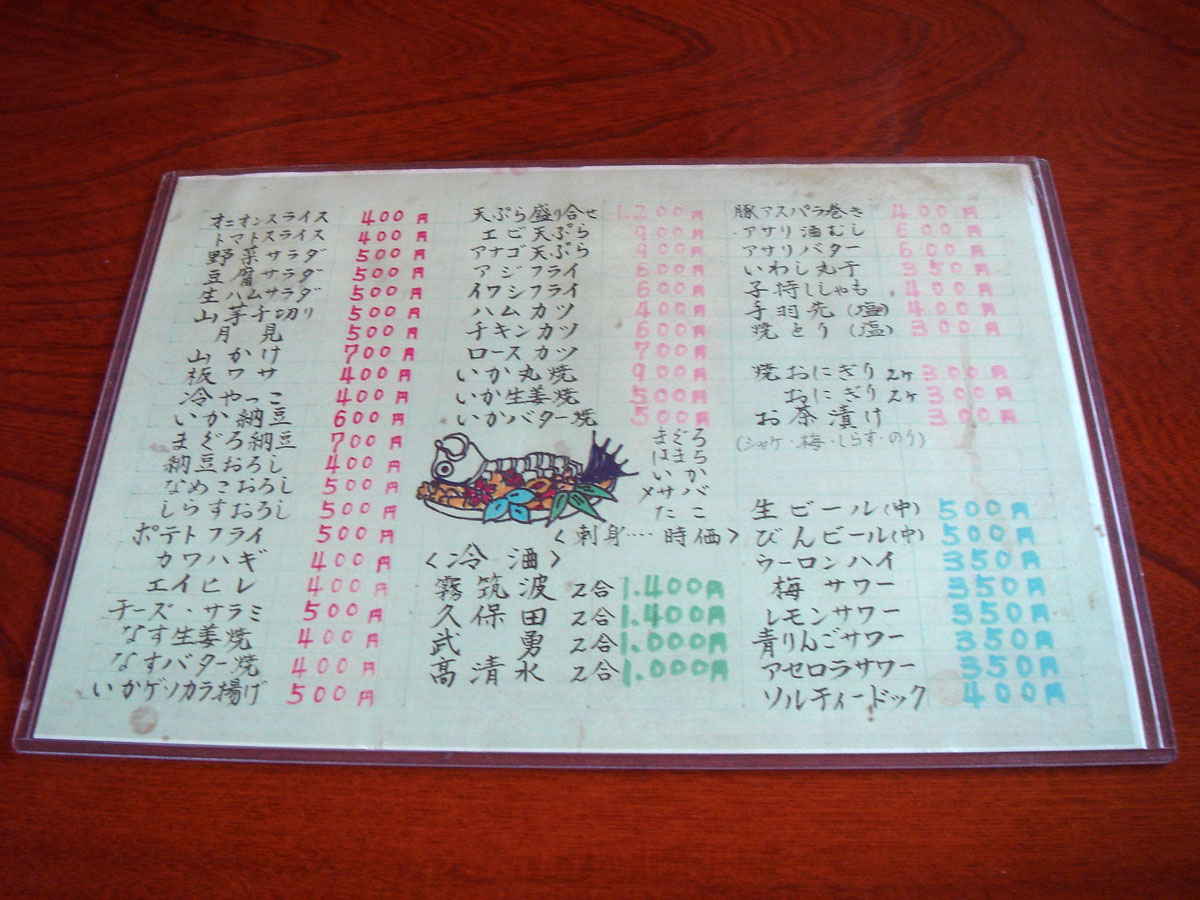 オニオンスライス 400円
トマトスライス 400円
野菜サラダ 500円
豆腐サラダ 500円
生ハムサラダ 500円
山芋千切り 500円
月見 500円
山かけ 700円
板ワサ 400円
冷やっこ 400円
いか納豆 600円
まぐろ納豆 700円
納豆おろし 400円
なめこおろし 500円
しらすおろし 500円
ポテトフライ 500円
カワハギ 400円
エイヒレ 400円
チーズ・サラミ 500円
なす生姜焼 400円
なすバター焼 400円
いかゲソカラ揚げ 500円
天ぷら盛り合せ 1.200円
エビ天ぷら 900円
アナゴ天ぷら 900円
アジフライ 600円
イワシフライ 600円
ハムカツ 400円
チキンカツ 600円
ロースカツ 700円
いか丸焼 900円
いか生姜焼 500円
いかバター焼 500円
まぐろ
はまち
いか
〆サバ
たこ
<刺身‥‥時価>
<冷酒>
霧筑波 2合 1.400円
久保田 2合 1.400円
武勇 2合 1.000円
高清水 2合 1.000円
豚アスパラ巻き 400円
アサリ酒むし 600円
アサリバター 600円
いわし丸干 350円
子持ししゃも 400円
手羽先(塩) 400円
焼とり(塩) 300円
焼おにぎり 2ヶ 300円
おにぎり 2ヶ 300円
お茶漬け 300円
(シャケ・梅・しらす・のり)
生ビール(中) 500円
びんビール(中) 500円
ウーロンハイ 350円
梅サワー 350円
レモンサワー 350円
青りんごサワー 350円
アセロラサワー 350円
ソルティードック 400円